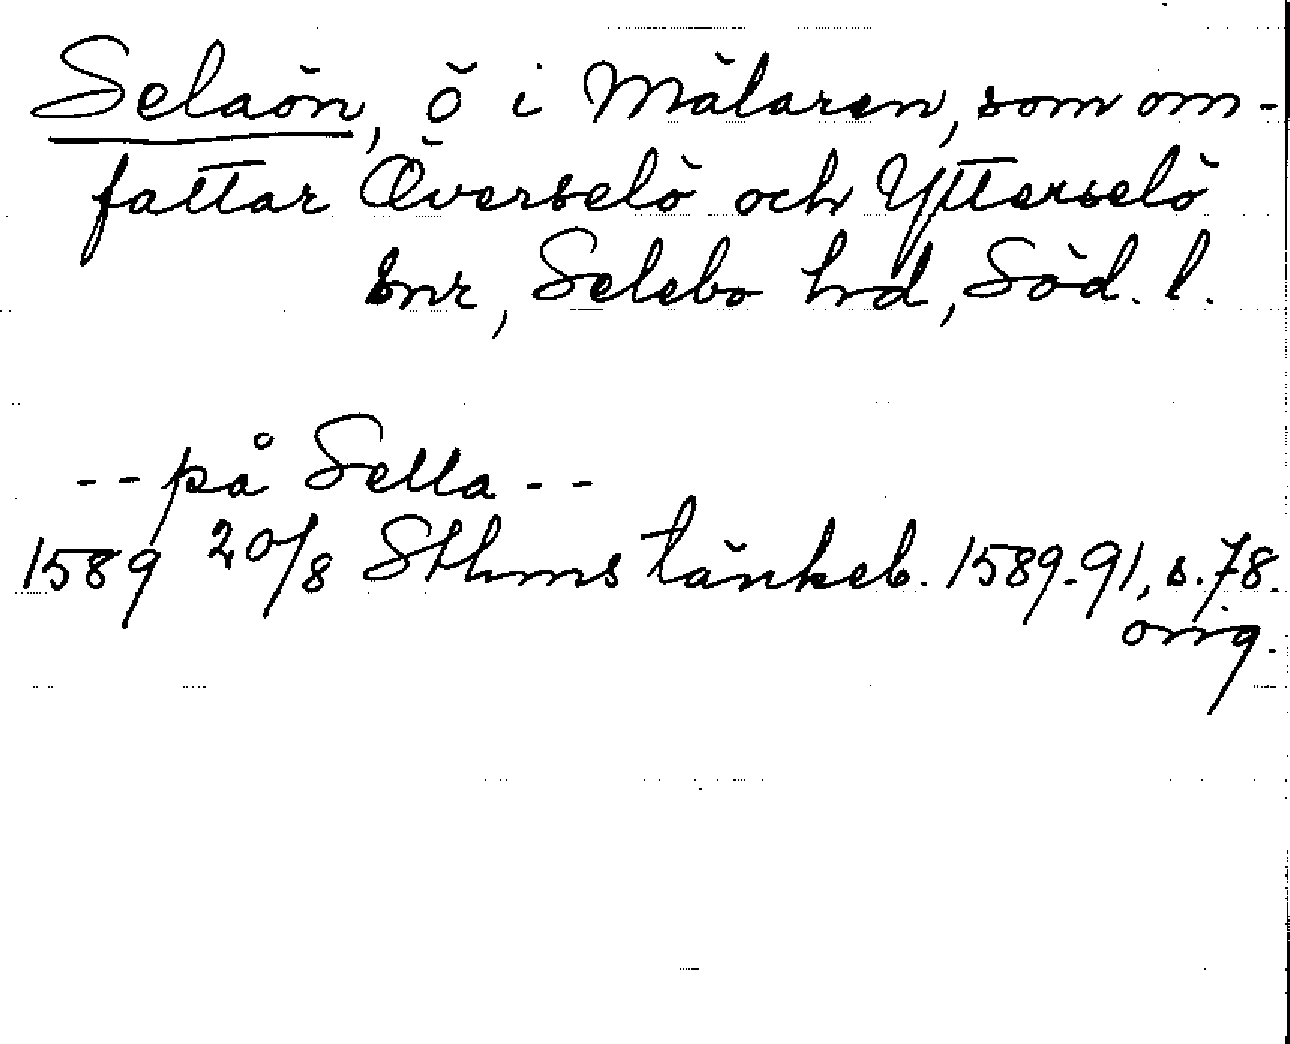 Selaön, ö i Mälaren, som om-
fattar Överselö och Ytterselö
snr, Selebo hrd, Söd. l.
-- på Sella --
1589 20/8 Sthms tänkeb. 1589-91, s. 78.
orig.